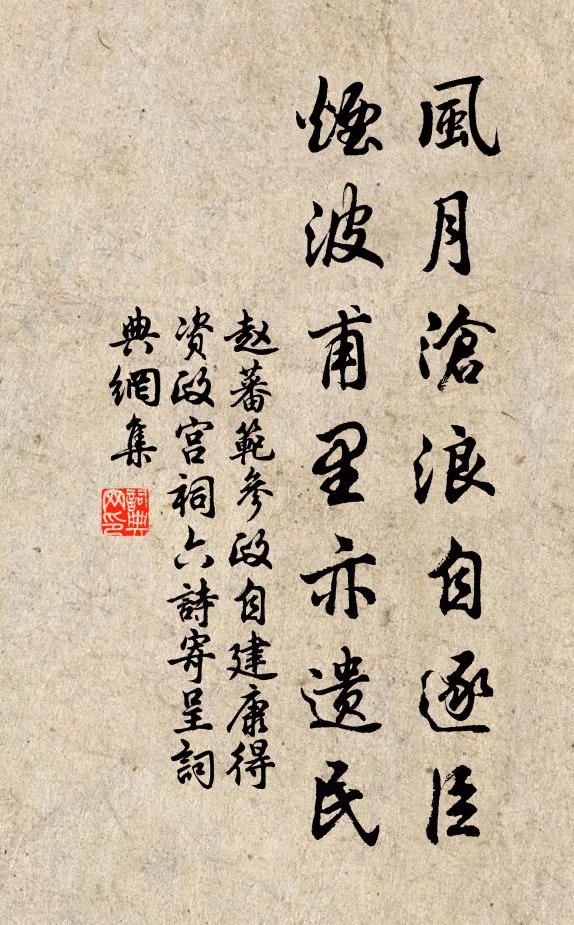 風月滄浪自逐臣
煙波甫里亦遺民
赵蕃範參政自建康得
资政宫祠六詩寄呈詞
典網集
詞典
网印